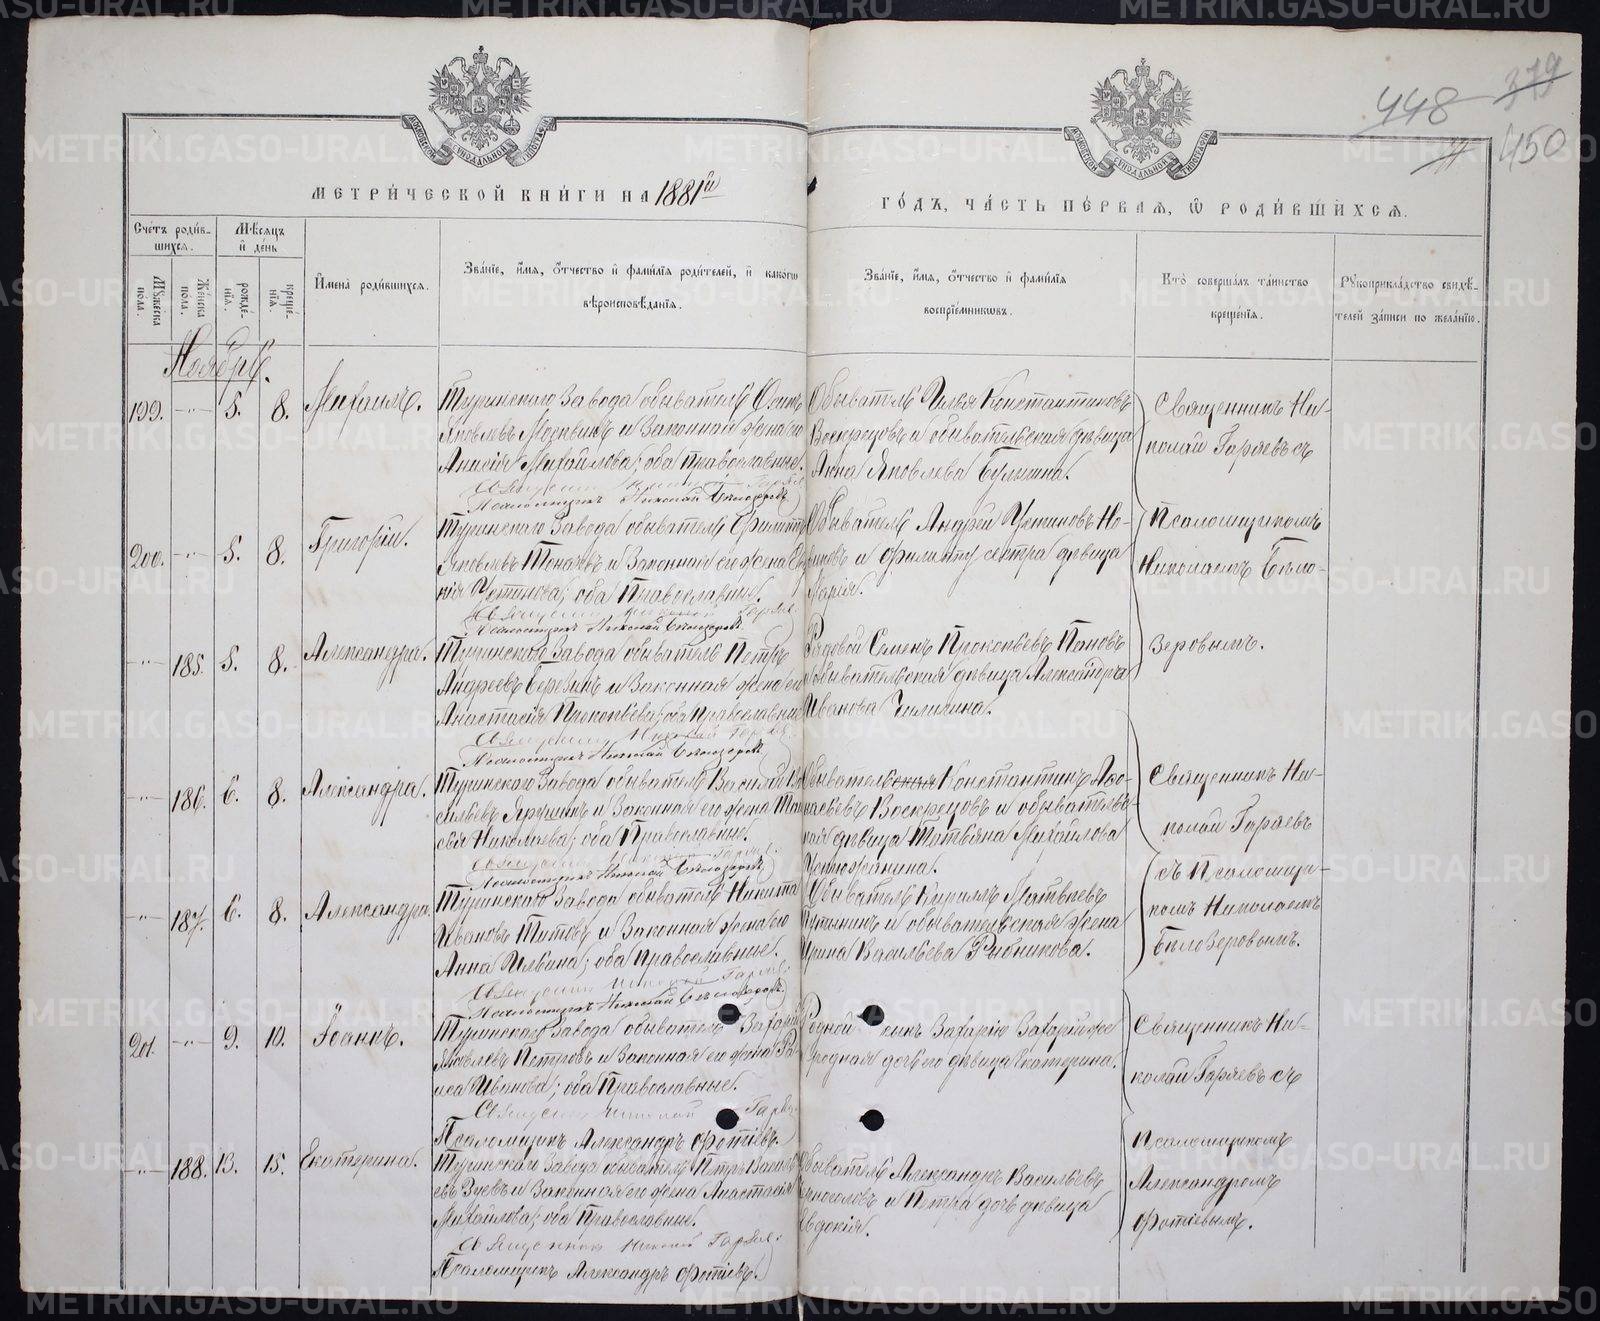 448
379
450
МЕТРИЧЕСКОЙ КНИГИ НА 1881й
ГОДЪ, ЧАСТЬ ПЕРВАЯ, Ѡ РОДИВШИХСЯ.
Счетъ родив-
шихся.
Мѣсяцъ
и день
Мужеска
пола.
Женска
пола.
рожде-
нія.
креще-
нія.
Имена родившихся.
Званіе, имя, отчество и фамилія родителей, и какого
вѣроисповѣданія.
Званіе, имя, отчество и фамилія
воспріемниковъ.
Кто совершалъ таинство
крещенія.
Рукоприкладство свидѣ-
телей записи по желанію.
Ноябрь.
199. -"- 5. 8. Михаилъ.
Туринскаго Завода обыватель Осипъ
Яковлевъ и Законная жена его
Анисія Михайлова; оба Православные.
Священникъ Николай Гаряев
Псаломщикъ Николай Бѣлозеровъ
Обыватель Илья Константиновъ
Воскрецовъ и обывательская дѣвица
Анна Яковлева
Священникъ Ни-
колай Гаряевъ съ
200. -"- 5. 8. Григорій.
Туринскаго Завода обыватель Филиппъ
Яковлевъ и Законная его жена
Устинова; оба Православные.
Священникъ Николай Гаряев
Псаломщикъ Николай Бѣлозеровъ
Обыватель Андрей Устиновъ Но-
виковъ и Филиппу сестра дѣвица
Марія.
Псаломщикомъ
Николаемъ Бѣло-
-"- 185. 5. 8. Александра.
Туринскаго Завода обыватель Петръ
Андреевъ и Законная жена его
Анастасія Прокопьева; оба Православные
Священникъ Николай Гаряев
Псаломщикъ Николай Бѣлозеровъ
Рядовой Семенъ Прокопьевъ Поповъ
и обывательская дѣвица Александра
Иванова
зеровымъ.
-"- 186. 6. 8. Александра.
Туринскаго Завода обыватель Василій Ва-
сильевъ и Законная его жена
Николаева; оба Православные.
Священникъ Николай Гаряев
Псаломщикъ Николай Бѣлозеровъ
Обыватель Константинъ
Воскрецовъ и обыватель-
ская дѣвица Татьяна Михайлова
Устюжанина.
Священникъ Ни-
колай Гаряевъ
-"- 187. 6. 8. Александра.
Туринскаго Завода обыватель Никита
Ивановъ Титовъ и Законная жена его
Анна Ильина; оба Православные.
Священникъ Николай Гаряев
Псаломщикъ Николай Бѣлозеровъ
Обыватель Кириллъ Матвѣевъ
и обывательская жена
Ирина Васильева Рыбникова.
съ Псаломщи-
комъ Николаемъ
Бѣлозеровымъ.
201. -"- 9. 10. Іоаннъ.
Туринскаго Завода обыватель Захарій
Яковлевъ Петровъ и Законная его жена Ра-
иса Иванова; оба Православные.
Священникъ Николай Гаряев
Псаломщикъ Александръ Фотіевъ.
Родной сынъ Захарію Захарій же
и родная дочь его дѣвица Екатерина.
Священникъ Ни-
колай Гаряевъ съ
-"- 188. 13. 15. Екатерина.
Туринскаго Завода обыватель Петръ Василь-
евъ Зуевъ и Законная его жена Анастасія
Михайлова; оба Православные.
Священникъ Николай Гаряев
Псаломщикъ Александръ Фотіевъ.
Обыватель Александръ Васильевъ
и Петра дочь дѣвица
Евдокія.
Псаломщикомъ
Александромъ
Фотіевымъ.
METRIKI.GASO-URAL.RU